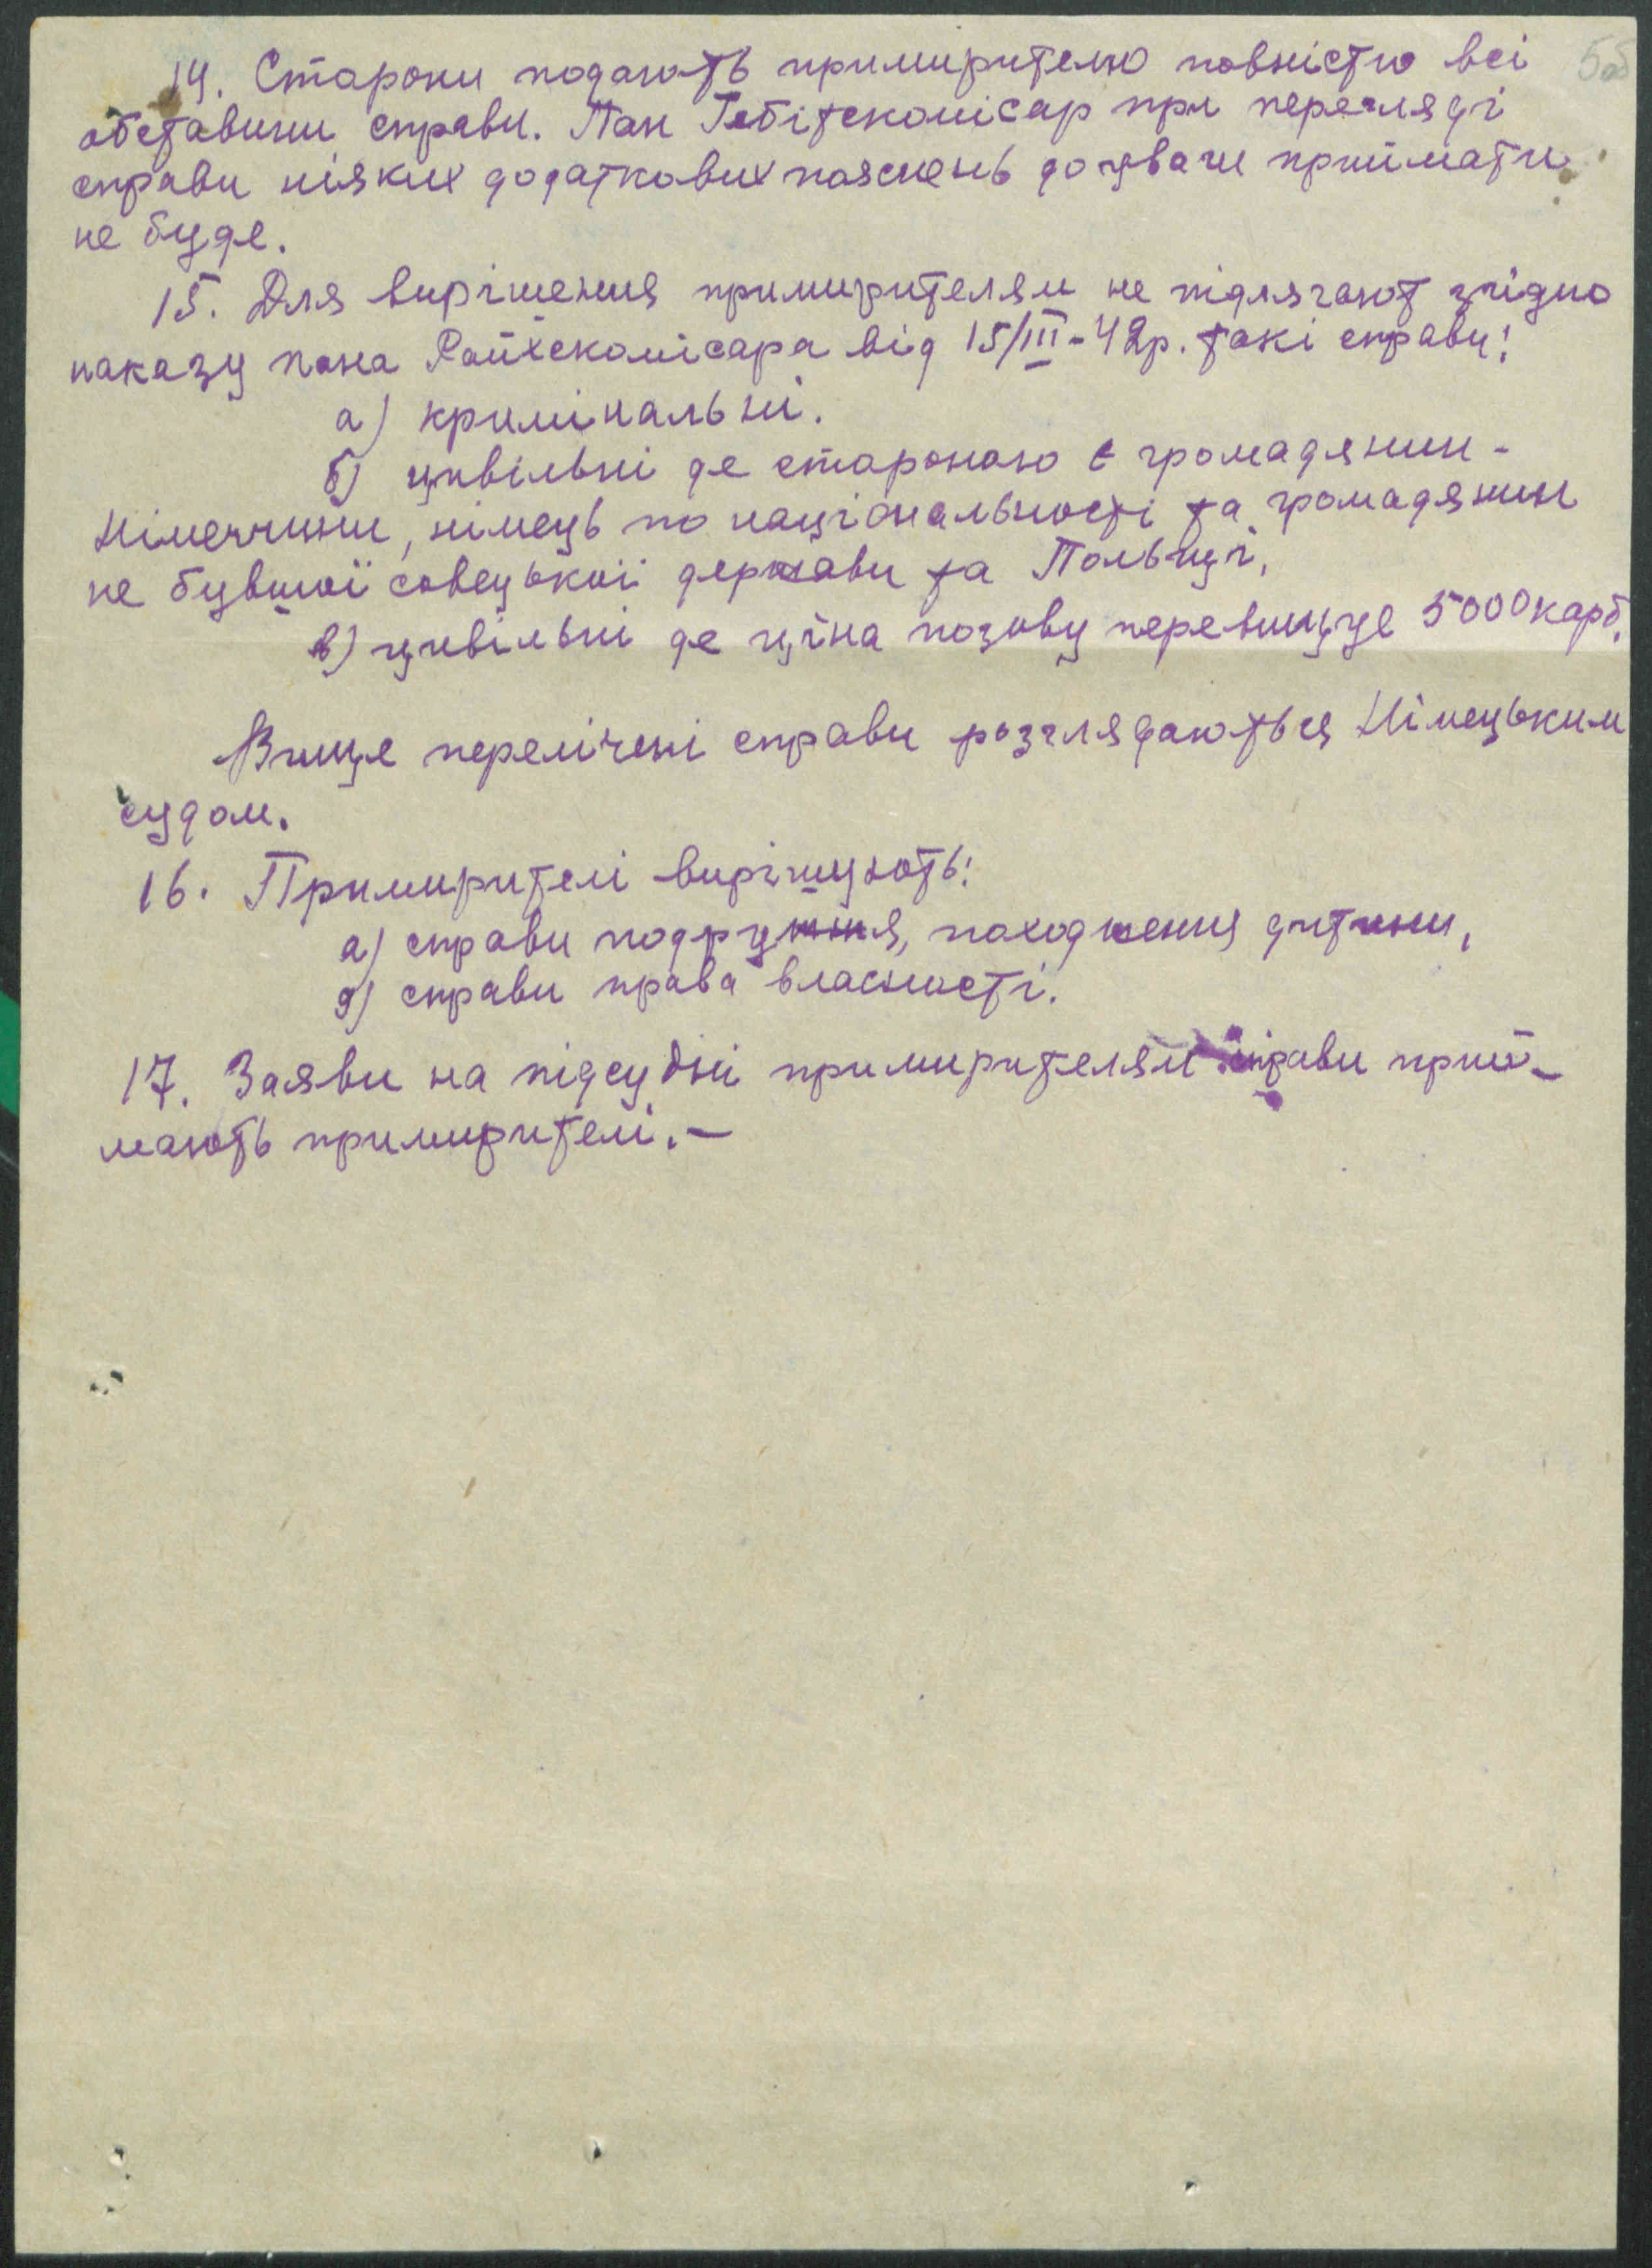 5об
14. Старони подають примирителю повністю всі
обставини справи. Пан Гебітскомісар при перегляді
справи ніяких додаткових пояснень до уваги приймати
не буде.
15. Для вирішення примирителям не підлягают згідно
наказу пана Райхскомісара від 15/III-42р. такі справи:
а) кримінальні.
б) цивільні де стороною є громадянин-
Німеччини, німець по національності та громадянин
не бувшої совецької держави та Польщі,
в) цивільні де ціна позову перевищує 5000 карб.
Вище перелічені справи розглядаються Німецьким
судом.
16. Примирителі вирішують:
а) справи подружжя, походження дитини,
д) справи права власності.
17. Заяви на підсудні примирителям справи прий-
мають примирителі.-